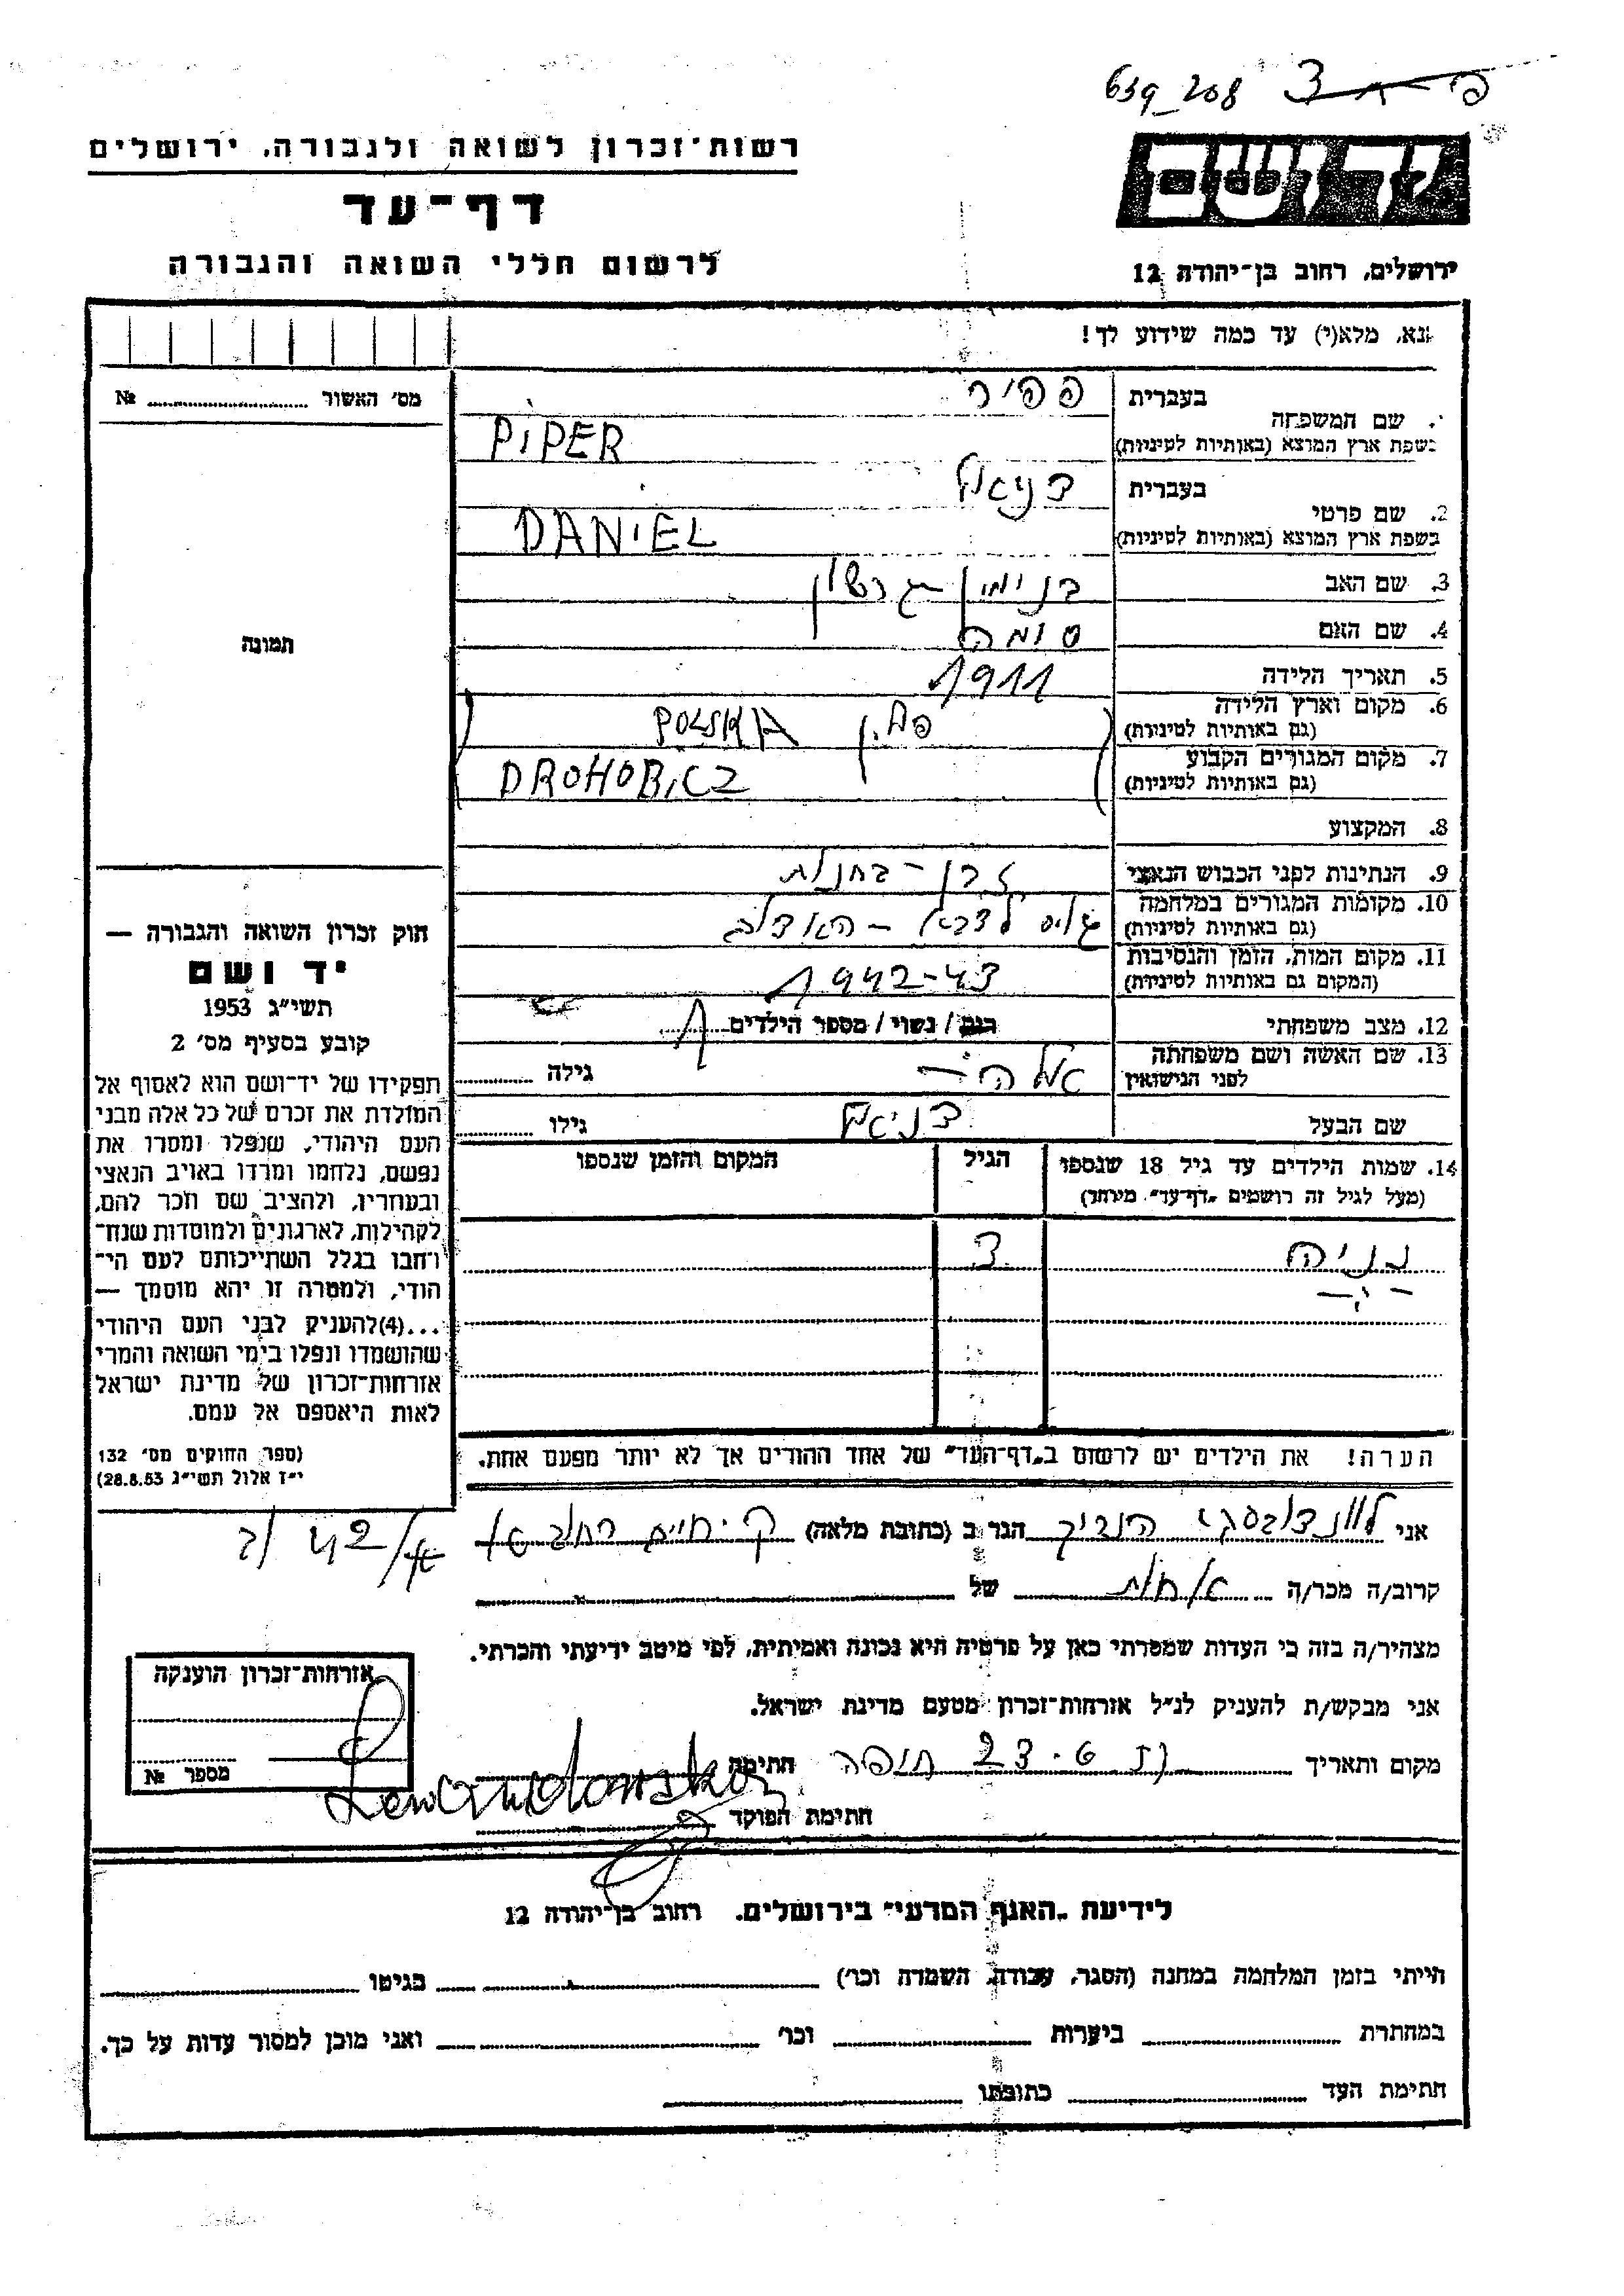 639_208
רשות־זכרון לשואה ולגבורה, ירושלים
יד ושם
דף־עד
לרשום חללי השואה והגבורה
ירושלים, רחוב בן־יהודה 12
נא, מלא(י) עד כמה שידוע לך!
מס' האשור № 
בעברית פפיר
שם המשפחה
בשפת ארץ המוצא (באותיות לטיניות) PIPER
בעברית דניאל
2. שם פרטי
בשפת ארץ המוצא (באותיות לטיניות) DANIEL
3. שם האב בנימין גרשון
4. שם האם
5. תאריך הלידה 1911
6. מקום וארץ הלידה
(גם באותיות לטיניות) פולין POLSKA
7. מקום המגורים הקבוע
(גם באותיות לטיניות) DROHOBICZ
8. המקצוע
9. הנתינות לפני הכבוש הנאצי
10. מקומות המגורים במלחמה
(גם באותיות לטיניות)
11. מקום המות, הזמן והנסיבות
(המקום גם באותיות לטיניות) 1942-43
12. מצב משפחתי רווק / נשוי / מספר הילדים 1
13. שם האשה ושם משפחתה
לפני הנישואין גילה
שם הבעל דניאל גילו
14. שמות הילדים עד גיל 18 שנספו הגיל המקום והזמן שנספו
(מעל לגיל זה רושמים „דף־עד" מיוחד)
3
הערה! את הילדים יש לרשום ב„דף־העד" של אחד ההורים אך לא יותר מפעם אחת.
תמונה
חוק זכרון השואה והגבורה —
יד ושם
תשי"ג 1953
קובע בסעיף מס' 2
תפקידו של יד־ושם הוא לאסוף אל
המולדת את זכרם של כל אלה מבני
העם היהודי, שנפלו ומסרו את
נפשם, נלחמו ומרדו באויב הנאצי
ובעוזריו, ולהציב שם וזכר להם,
לקהילות, לארגונים ולמוסדות שנח־
רחבו בגלל השתייכותם לעם הי־
הודי, ולמטרה זו יהא מוסמך —
...(4)להעניק לבני העם היהודי
שהושמדו ונפלו בימי השואה והמרי
אזרחות־זכרון של מדינת ישראל
לאות היאספם אל עמם.
(ספר החוקים מס' 132
י"ז אלול תשי"ג 28.8.53)
אני הגר ב (כתובת מלאה) ק. חיים רחוב
42/
קרוב/ה מכר/ה אחות של
מצהיר/ה בזה כי העדות שמסרתי כאן על פרטיה היא נכונה ואמיתית, לפי מיטב ידיעתי והכרתי.
אני מבקש/ת להעניק לנ"ל אזרחות־זכרון מטעם מדינת ישראל.
מקום ותאריך חיפה חתימה
חתימת הפוקד
אזרחות־זכרון הוענקה
מספר №
לידיעת „האגף המדעי" בירושלים. רחוב בן־יהודה 12
הייתי בזמן המלחמה במחנה (הסגר, עבודה, השמדה וכו') בגיטו
במחתרת ביערות וכו' ואני מוכן למסור עדות על כך.
חתימת העד כתובתו